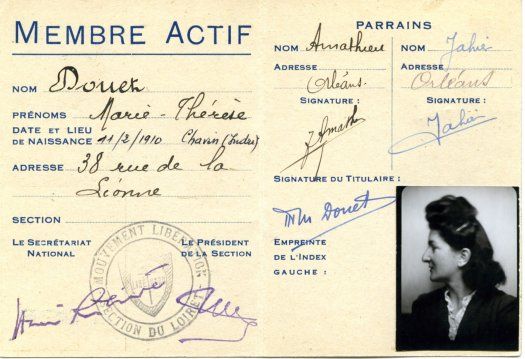 MEMBRE ACTIF
NOM Douet
PRÉNOMS Marie-Thérèse
DATE ET LIEU
DE NAISSANCE 11/2/1910 Chavin (Indre)
ADRESSE 38 rue de la
Lionne
SECTION
LE SECRÉTARIAT
NATIONAL
LE PRÉSIDENT
DE LA SECTION
MOUVEMENT LIBERATION
SECTION DU LOIRET
PARRAINS
NOM Amathieu
ADRESSE
Orléans.
SIGNATURE :
J Amath
NOM Jahier
ADRESSE
Orléans
SIGNATURE :
Jahier
SIGNATURE DU TITULAIRE :
Douet
EMPREINTE
DE L'INDEX
GAUCHE :